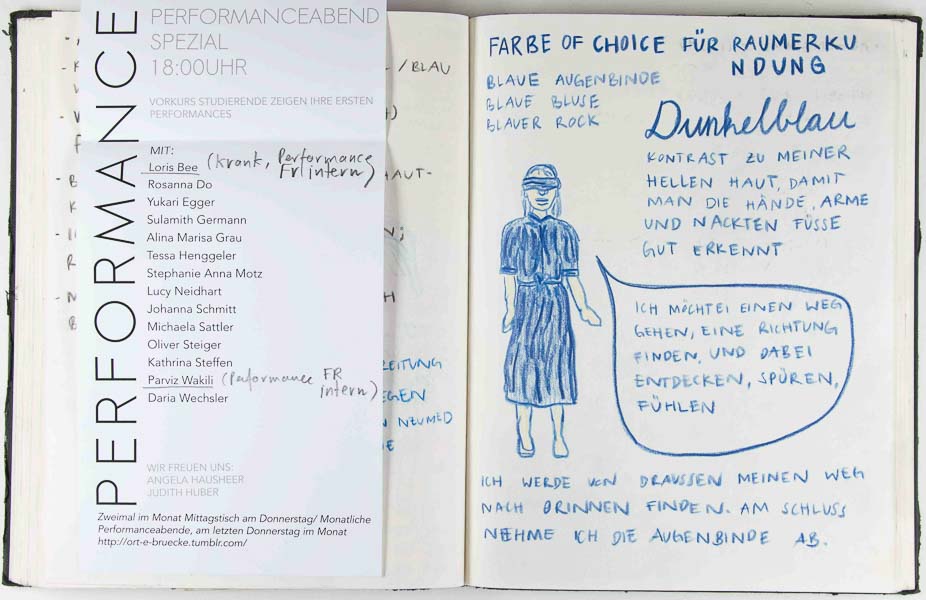 PERFORMANCE
PERFORMANCEABEND
SPEZIAL
18:00UHR
VORKURS STUDIERENDE ZEIGEN IHRE ERSTEN
PERFORMANCES
MIT:
Loris Bee (krank, Performance
Fr intern)
Rosanna Do
Yukari Egger
Sulamith Germann
Alina Marisa Grau
Tessa Henggeler
Stephanie Anna Motz
Lucy Neidhart
Johanna Schmitt
Michaela Sattler
Oliver Steiger
Kathrina Steffen
Parviz Wakili (Performance FR
intern)
Daria Wechsler
WIR FREUEN UNS:
ANGELA HAUSHEER
JUDITH HUBER
Zweimal im Monat Mittagstisch am Donnerstag/ Monatliche
Performanceabende, am letzten Donnerstag im Monat
http://ort-e-bruecke.tumblr.com/
/BLAU
FARBE OF CHOICE FÜR RAUMERKU
NDUNG
BLAUE AUGENBINDE
BLAUE BLUSE
BLAUER ROCK
Dunkelblau
KONTRAST ZU MEINER
HELLEN HAUT, DAMIT
MAN DIE HÄNDE, ARME
UND NACKTEN FÜSSE
GUT ERKENNT
ICH MÖCHTE EINEN WEG
GEHEN, EINE RICHTUNG
FINDEN, UND DABEI
ENTDECKEN, SPÜREN,
FÜHLEN
ICH WERDE VON DRAUSSEN MEINEN WEG
NACH DRINNEN FINDEN. AM SCHLUSS
NEHME ICH DIE AUGENBINDE AB.